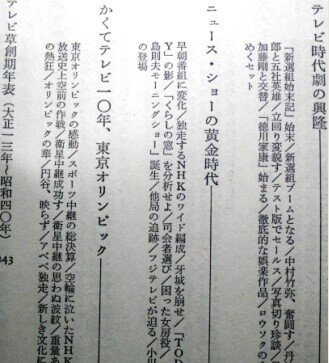 テレビ時代劇の興隆
「新選組始末記」始末／新選組ブームとなる／中村竹弥、奮闘す／扶
郎と五社英雄／立回り変貌す／テスト版でセールス／写真切り珍談／
加藤剛と交替／「徳川家康」始まる／徹底的な娯楽作品／ロウソク
めくセット
ニュース・ショーの黄金時代
早朝番組に変化／独走するNHKのワイド編成／牙城を崩せ／「TOD
Y」の影／〝くらしの窓〟を分析せよ／司会者選び／困った女房役／
島則夫モーニングショー」誕生／他局の追跡／フジテレビが迫る／小川
の登場
かくてテレビ一〇年、東京オリンピック
東京オリンピックの感動／スポーツ中継の総決算／空輸に泣いたNHK
放送史上空前の作戦／衛星中継成功す／衛星中継の思わぬ波紋／重量
の熱狂／オリンピックの華／円谷、映らず／アベベ独走／新しき文化
テレビ草創期年表（大正一三年〜昭和四〇年）
243